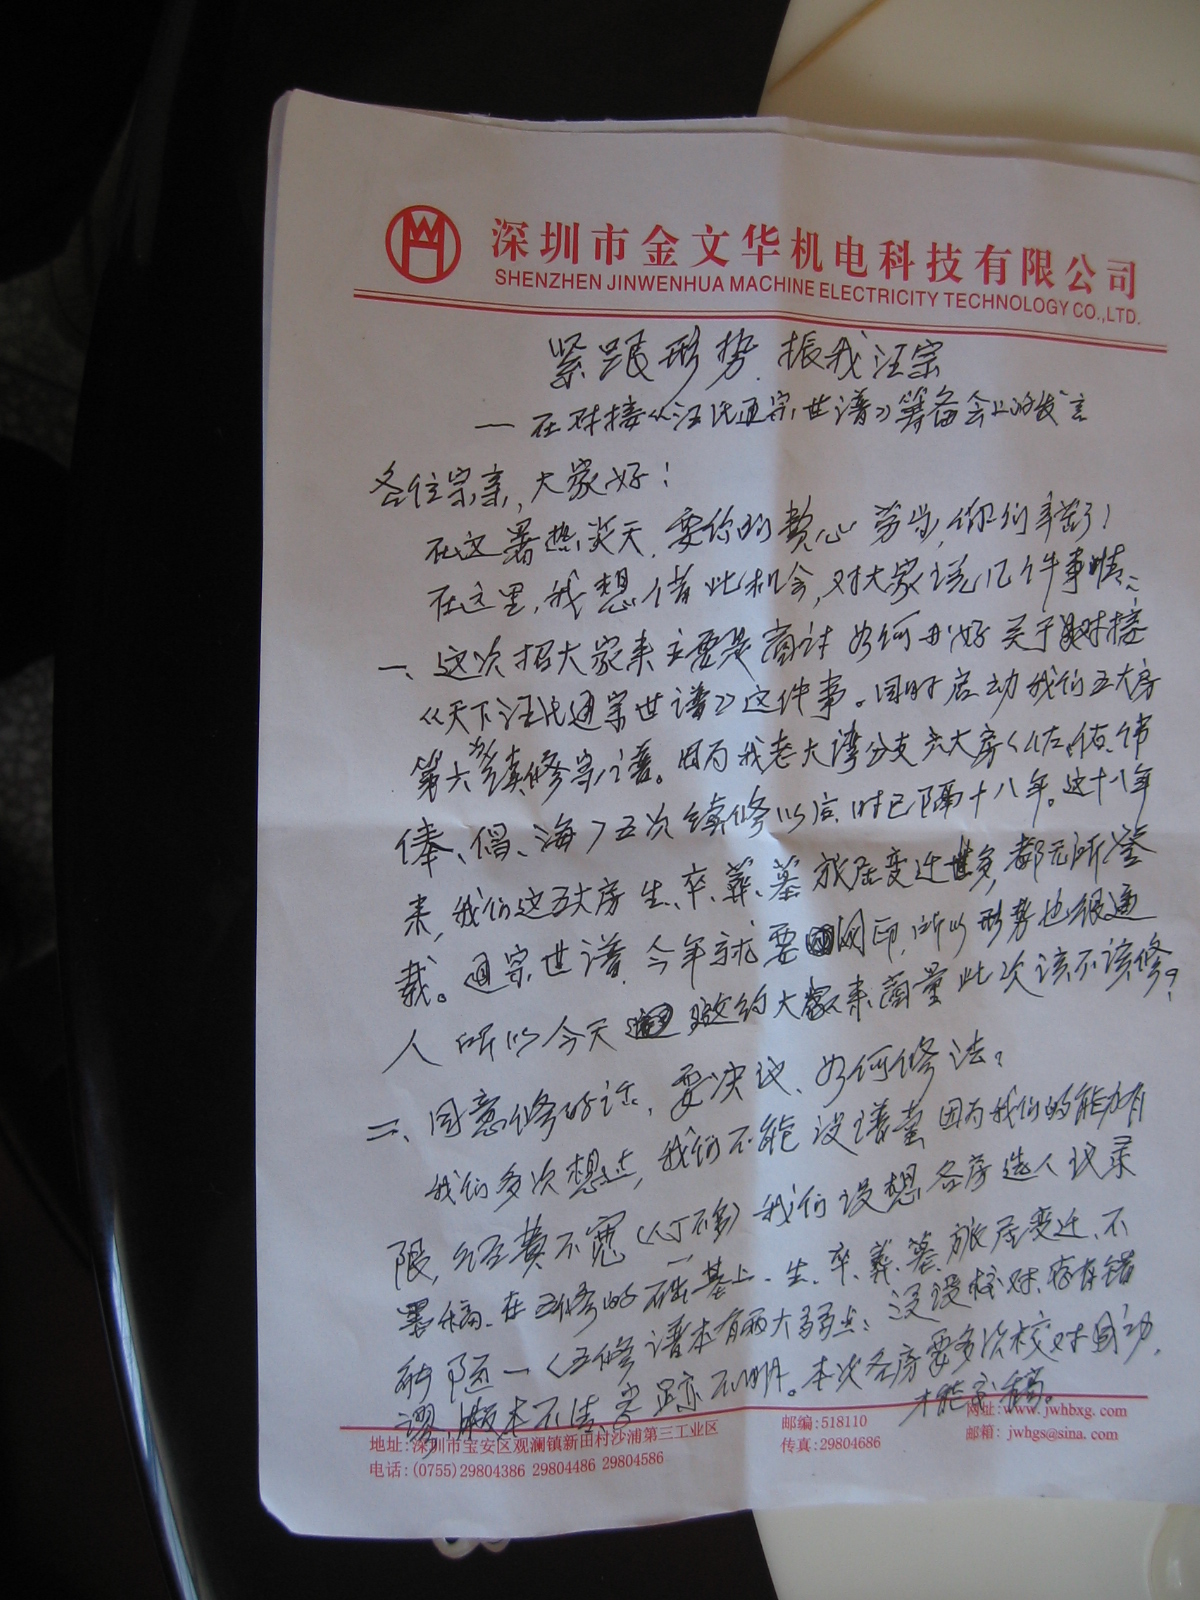 深圳市金文华机电科技有限公司
SHENZHEN JINWENHUA MACHINE ELECTRICITY TECHNOLOGY CO.,LTD.
紧跟形势.振我汪宗
一在对接《汪氏通宗世谱》筹备会上的发言
各位宗亲,大家好!
在这暑热炎天,要你的费心劳步,你们辛苦了!
在这里,我想借此机会,对大家说几件事情:
一、这次招大家来主要是商讨如何办好关于对接
《天下汪氏通宗世谱》这件事。同时启动我们五大房
第六次续修宗谱。因为我老大湾分支六大房(佐、佑、伟
俸、侣、海)五次续修以后,时已隔十八年。这十八年
来,我们这五大房生、卒、葬、墓、旅居变迁甚多,都无所登
载。通宗世谱.今年就要网印,所以形势也很逼
人 所以今天邀约大家来商量此次该不该修?
二、同意修的话,要决议、如何修法?
我们多次想过,我们不能设谱堂 因为我们的能力有
限,经费不宽(人丁不多)我们设想各房选人议录
墨稿、在五修的础基上、生、卒、葬、墓、旅居变迁、不
断 一(五修谱本有两大弱点:没设校对、存在错
谬,版本不清,字迹不明。本次各房要多次校对
才能定稿。
地址:深圳市宝安区观澜镇新田村沙浦第三工业区
邮编:518110
网址:www.jwhbxg.com
电话:(0755)29804386 29804486 29804586
传真:29804686
邮箱:jwhgs@sina.com